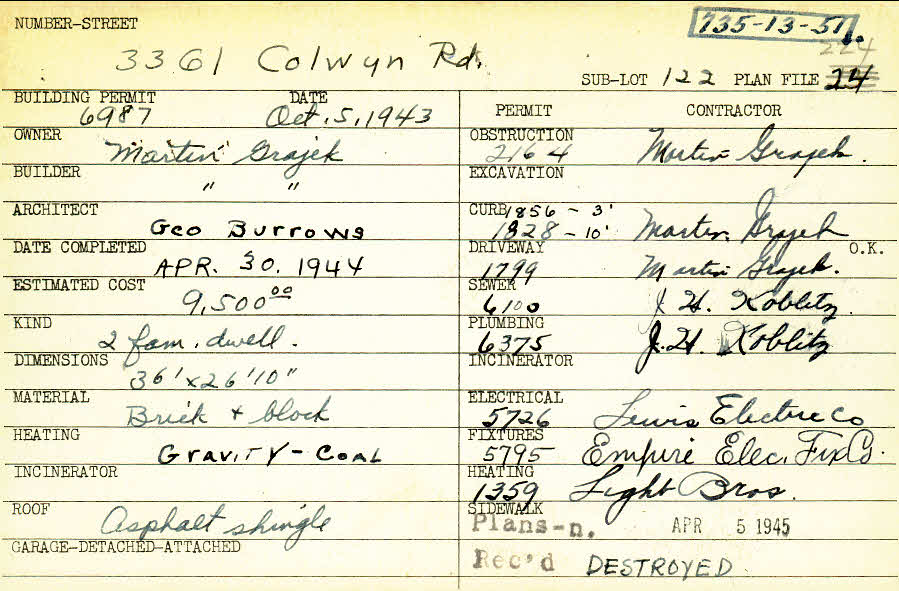 NUMBER-STREET
735-13-51
3361 Colwyn Rd.
224
SUB-LOT 122 PLAN FILE 24
BUILDING PERMIT DATE
6987 Oct. 5, 1943
OWNER
Martin Grajek
BUILDER
" "
ARCHITECT
Geo Burrows
DATE COMPLETED
APR. 30. 1944
ESTIMATED COST
9,500.00
KIND
2 fam. dwell.
DIMENSIONS
36'x26'10"
MATERIAL
Brick + block
HEATING
GRAVITY-COAL
INCINERATOR
ROOF
Asphalt shingle
GARAGE-DETACHED-ATTACHED
PERMIT CONTRACTOR
OBSTRUCTION
2164 Martin Grajek.
EXCAVATION
CURB 1856 - 3'
1828 - 10' Martin Grajek
DRIVEWAY O.K.
1799 Martin Grajek.
SEWER
6100 J. H. Koblitz
PLUMBING
6375 J. H. Koblitz
INCINERATOR
ELECTRICAL
5726 Lewis Electric Co
FIXTURES
5795 Empire Elec. Fix Co.
HEATING
1359 Light Bros.
SIDEWALK
Plans-n. APR 5 1945
Rec'd DESTROYED